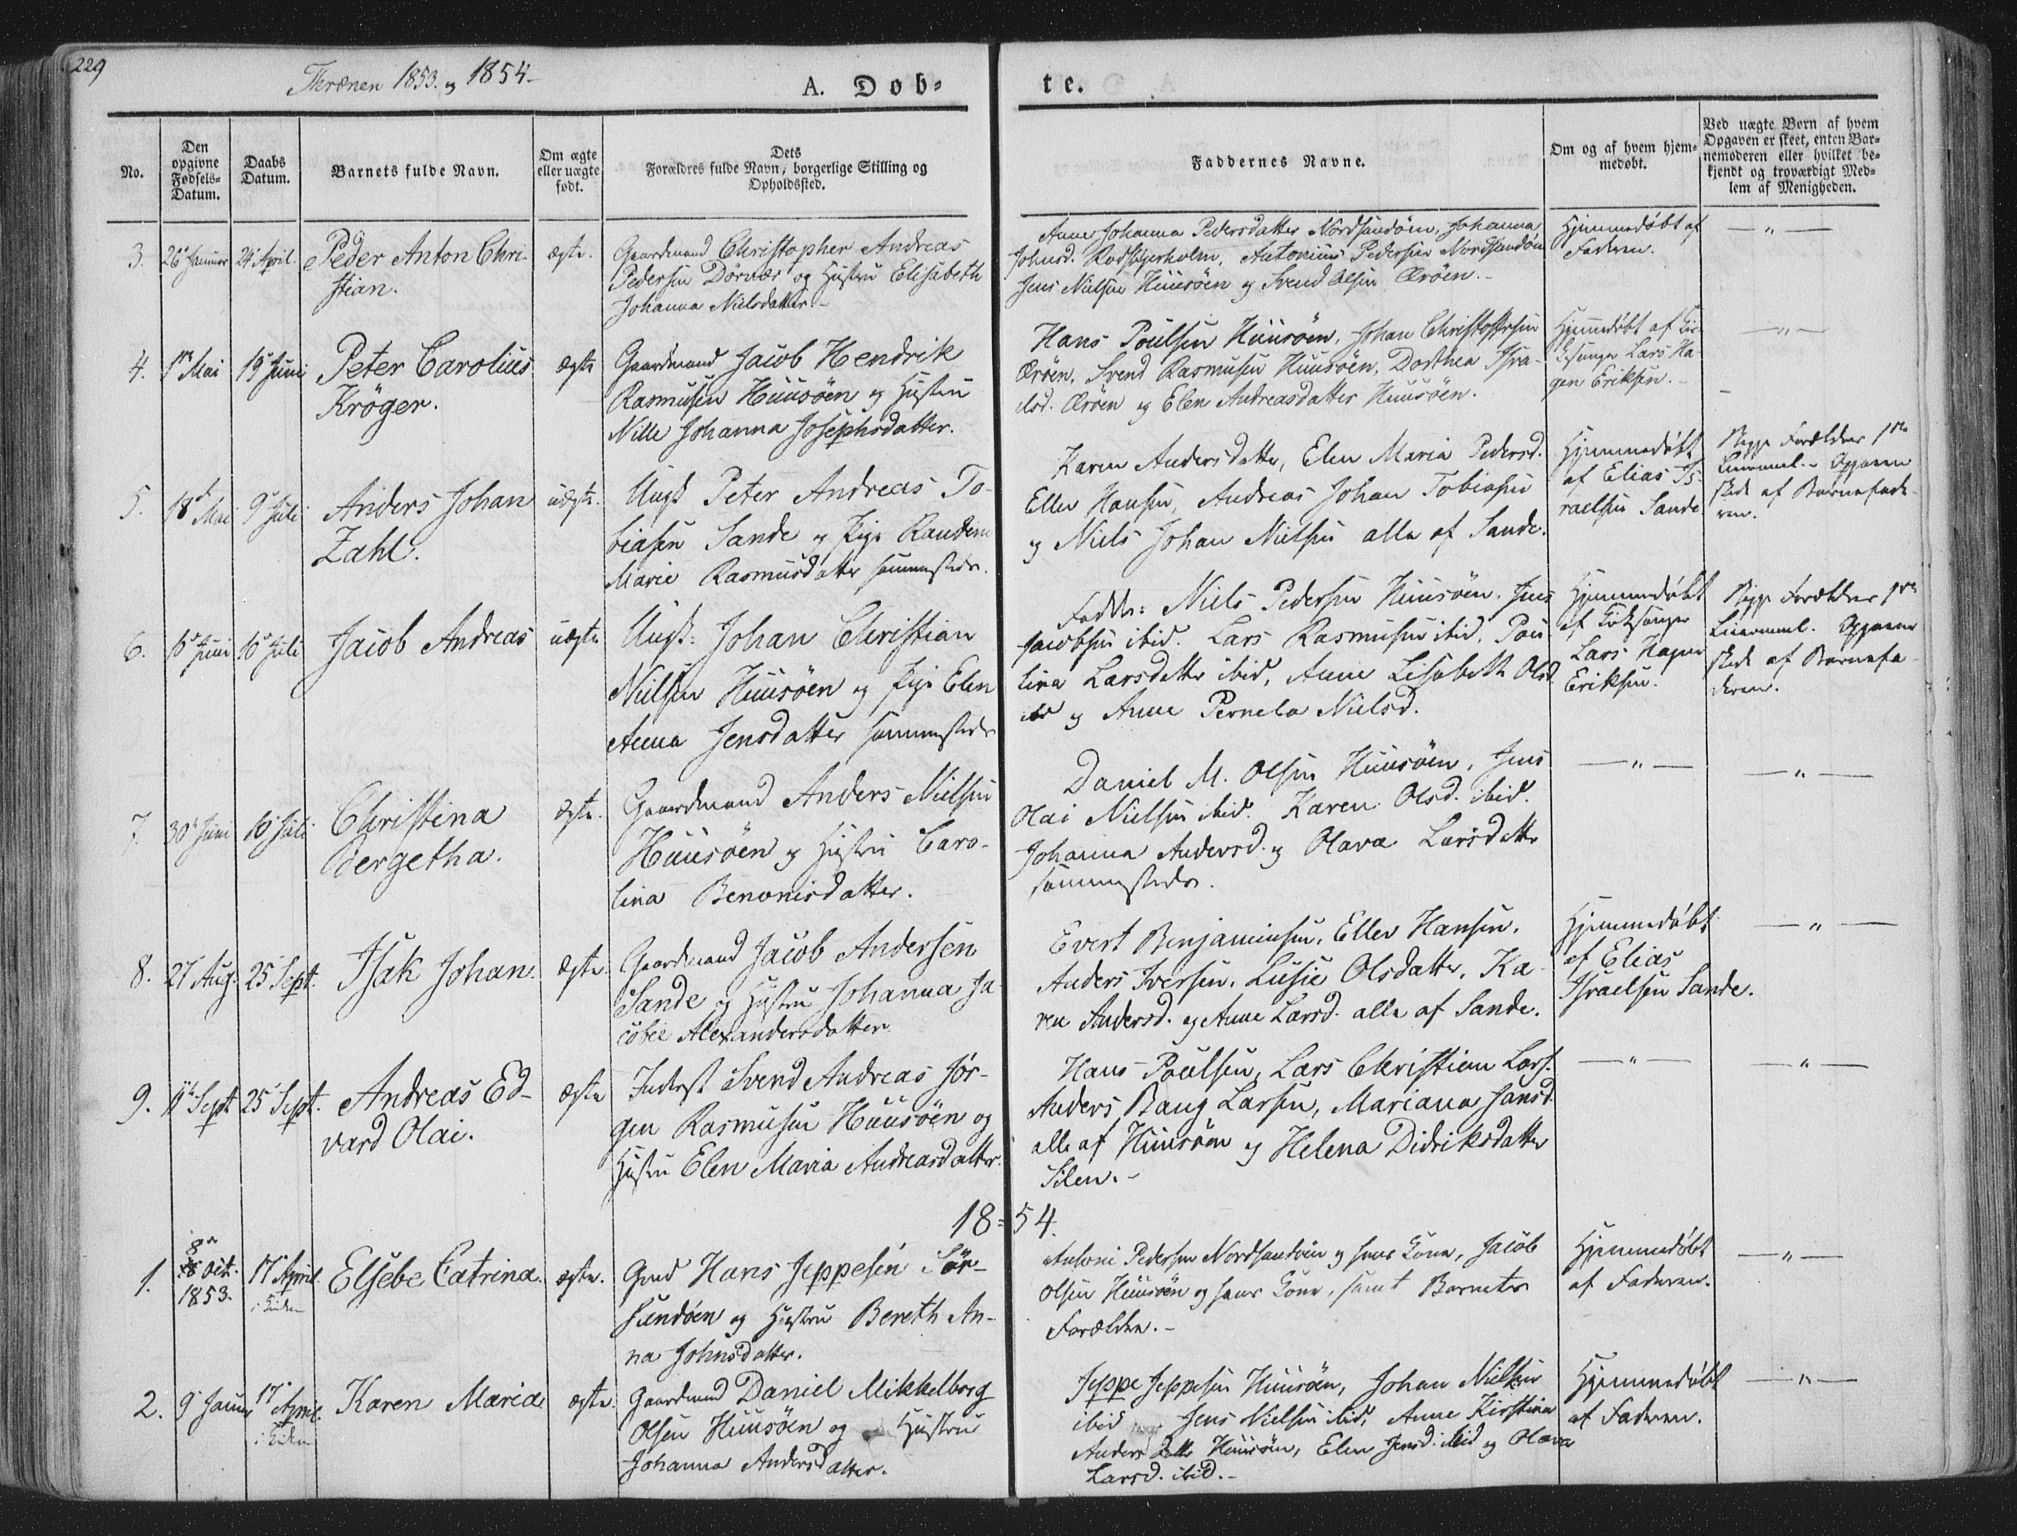 229
Thrænen 1853. og 1854.
A. Døb-
te.
No.
Den
opgivne
Fødsels-
Datum.
Daabs
Datum.
Barnets fulde Navn.
Om ægte
eller uægte
født.
Dets
Forældres fulde Navn, borgerlige Stilling og
Opholdssted.
Faddernes Navne.
Om og af hvem hjem-
medøbt.
Ved uægte Børn af hvem
Opgaven er skeet, enten Bar-
nemoderen eller hvilket be-
kjendt og troværdigt Med-
lem af Menigheden.
3.
26 Januar
24 April.
Peder Anton Chri-
stian.
ægte.
Gaardmand Christopher Andreas
Pedersen Dörvær og Hustru Elisabeth
Johanna Nielsdatter
Anne Johanna Pedersdatter Nordsandöen, Johanna
Johnsd. Antonius Pedersen Nordsandöen
Jens Nielsen Huusöen og Svend Olsen Æröen.
Hjemmedøbt af
Faderen.
— " —
4.
1 Mai
19 Juni
Peter Carolius
Kröger.
ægte
Gaardmand Jacob Hendrik
Rasmusen Huusöen og Hustru
Nille Johanna Josephsdatter.
Hans Poulsen Huusöen, Johan Christophersen
Æröen, Svend Rasmusen Huusöen, Dorthea Isra-
elsd. Æröen og Elen Andreasdatter Huusöen.
Hjemmedøbt af Kir-
kesanger Lars Ha-
gen Eriksen.
— " —
5.
18 Mai
9 Juli
Anders Johan
Zahl.
uægte.
Ungk. Peter Andreas To-
biasen Sande og Pige
Marie Rasmusdatter sammesteds.
Karen Andersdatter, Elen Maria Pedersd.
Eller Hansen, Andreas Johan Tobiasen
og Niels Johan Nielsen alle af Sande.
Hjemmedøbt
af Elias Is-
raelsen Sande
Begge Forældres 1ste
Leiermaal. Opgaven
skede af Barnefade-
ren.
6.
Juni
10 Juli
Jacob Andreas
uægte
Ungk. Johan Christian
Nielsen Huusöen og Pige Elen
Anna Jensdatter sammesteds
Faddere: Niels Pedersen Huusöen. Jens
Jacobsen ibid. Lars Rasmusen ibid. Pou-
lina Larsdatter ibid, Anne Lisabeth Olsd.
ibid og Anne Pernela Nielsd.
Hjemmedøbt
af Kirksanger
Lars Hagen
Eriksen.
Begge Forældres 1ste
Leiermaal. Opgaven
skede af Barnefa-
deren.
7.
30 Juni
10 Juli
Christina
Bergetha.
ægte.
Gaardmand Anders Nielsen
Huusöen og Hustru Caro-
lina Benonisdatter.
Daniel M. Olsen Huusöen, Jens
Olai Nielsen ibid. Karen Olsd. ibid.
Johanna Andersd. og Olava Larsdatter
sammesteds.
— " —
— " —
8.
27 Aug.
25 Sept.
Isak Johan.
ægte.
Gaardmand Jacob Andersen
Sande og Hustru Johanna Ja-
cobie Alexandersdatter
Evert Benjaminsen, Eller Hansen,
Anders Iversen, Lusie Olsdatter, Ka-
ren Andersd. og Anne Larsd. alle af Sande.
Hjemmedøbt
af Elias
Israelsen Sande.
— " —
9.
11 Sept
25 Sept.
Andreas Ed-
vard Olai.
ægte
Inderst Svend Andreas Jör-
gen Rasmusen Huusöen og
Hustru Elen Maria Andreasdatter.
Hans Poulsen, Lars Christian Lars.
Anders Bang Larsen, Mariana Jansd.
alle af Huusöen og Helena Didriksdatter
Selen.
— " —
— " —
18-54.
1.
8
Oct.
1853.
17 April
i Kirken
Elsebe Catrina.
ægte.
Gmd Hans Jeppesen Sör-
sundöen og Hustru Bereth An-
na Johnsdatter.
Antoni Pedersen Nordsandöen og hans Kone, Jacob
Olsen Huusöen og hans Kone, samt Barnets
Forældre.
Hjemmedøbt
af Faderen.
— " —
2.
9 Januar
17 April.
i Kirken
Karen Maria
ægte.
Gaardmand Daniel Mikkelborg
Olsen Huusöen og Hustrue
Johanna Andersdatter.
Jeppe Jeppesen Huusöen, Johan Nielsen
ibid Jens Nielsen ibid, Anne Kirstina
Andersdatter Huusöen, Elen Jensd. ibid og Olava
Larsd. ibid.
Hjemmedøbt
af Faderen.
— " —